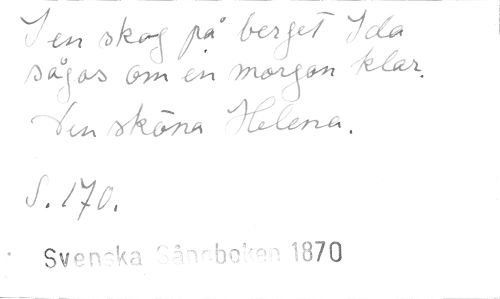 I en skog på berget Ida
sågos om en morgon klar.
Den sköna Helena.
S. 170.
Svenska Sångboken 1870